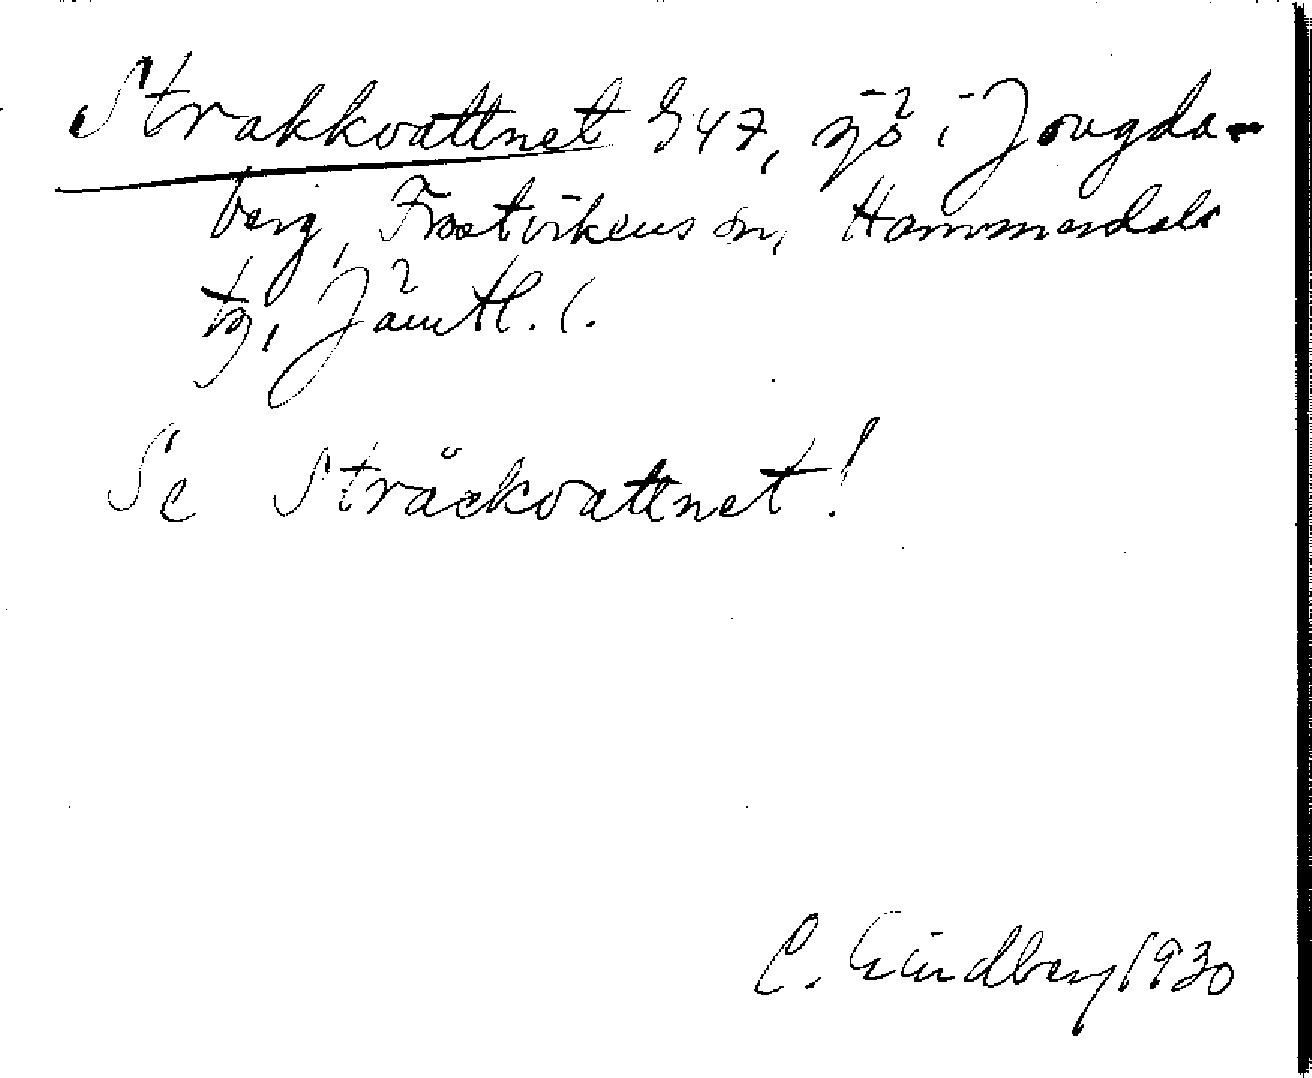 Strakkvattnet G47, sjö i Jougda-
berg, Frostvikens sn, Hammerdals
tg, Jämtl. l.
Se Sträckvattnet!
C. Lindberg 1930